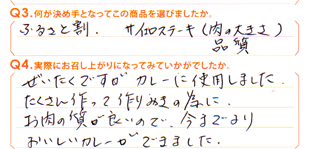 Q3.何が決め手となってこの商品を選びましたか。
ふるさと割. サイコロステーキ(肉の大きさ)
品質
Q4.実際にお召し上がりになってみていかがでしたか。
ぜいたくですが カレーに使用しました.
たくさん作って作りおきの為に.
お肉の質が良いので. 今までより
おいしいカレーができました.